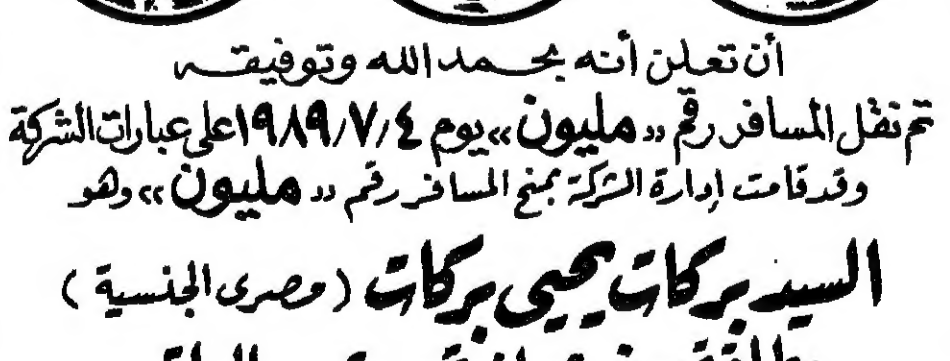 أن تعلن أنه بحمد الله وتوفيقه
تم نقل المسافر رقم «مليون» يوم ١٩٨٩/٧/٤ على عبارات الشركة
وقد قامت إدارة الشركة بمنح المسافر رقم «مليون» وهو
السيد بركات يحيى بركات (مصرى الجنسية)